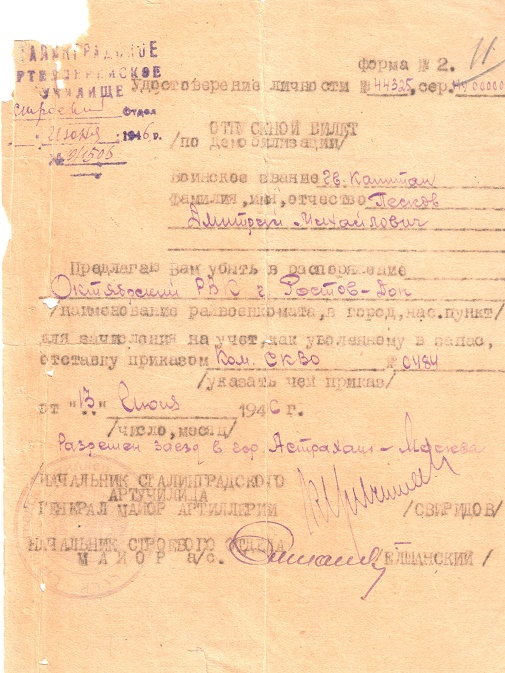 СТАЛИНГРАДСКОЕ
АРТИЛЛЕРИЙСКОЕ
УЧИЛИЩЕ
Строевой Отдел
Июня 1946 г.
№ 9/1506
Форма № 2. 11
Удостоверение личности № 44325, сер.
ОТПУСКНОЙ БИЛЕТ
/по демобилизации/
Воинское звание Гв. Капитан
фамилия, имя, отчество Песков
Дмитрий Михайлович
Предлагаю Вам убыть в распоряжение
Октябрьский РВК г. Ростов-Дон
/наименование райвоенкомата, в город, нас. пункт/
для зачисления на учет, как уволенному в запас,
отставку приказом Ком. СКВО № 0484
/указать чем приказ/
от "13" Июня 1946 г.
/число, месяц/
Разрешен заезд в гор. Астрахань-Москва
НАЧАЛЬНИК СТАЛИНГРАДСКОГО
АРТУЧИЛИЩА
ГЕНЕРАЛ МАЙОР АРТИЛЛЕРИИ /СВИРИДОВ/
НАЧАЛЬНИК СТРОЕВОГО ОТДЕЛА
МАЙОР а/с. /ЕЛШАНСКИЙ/